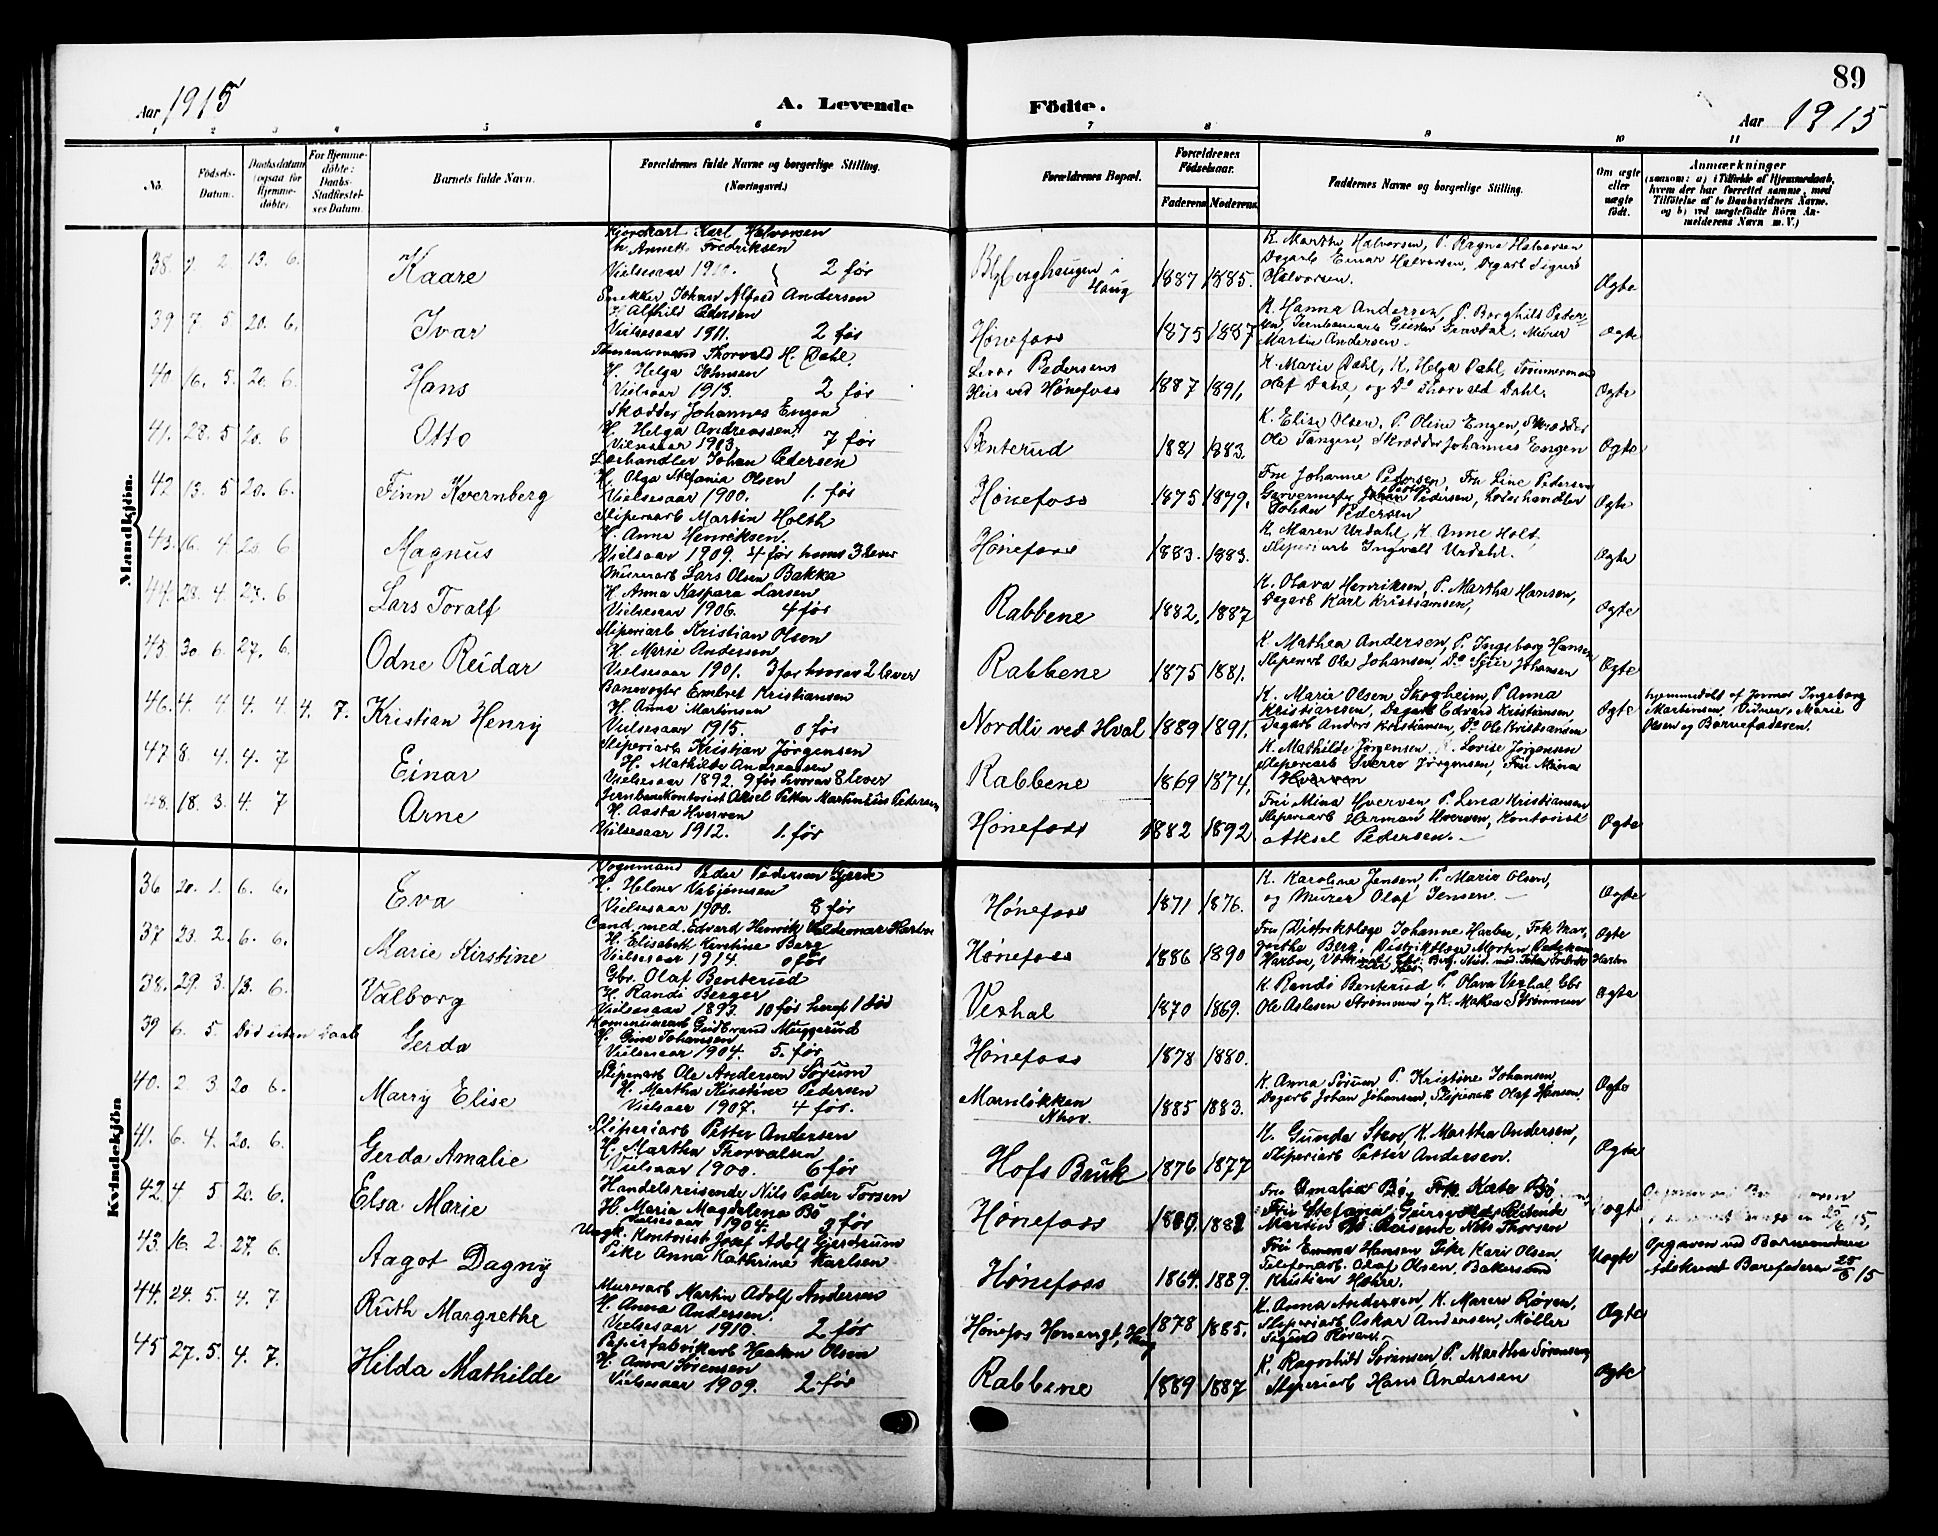 89
Aar 1915
A. Levende
Födte.
Aar 1915
1 2 3 4 5 6 7 8 9 10 11
No.
Födsels-
Datum.
Daabsdatum
(ogsaa for
Hjemme-
döbte).
For Hjemme-
döbte:
Daabs-
Stadfæstel-
ses Datum.
Barnets fulde Navn.
Forældrenes fulde Navne og borgerlige Stilling.
(Næringsvei.)
Forældrenes Bopæl.
Forældrenes
Födselsaar.
Faderens
Moderens
Faddernes Navne og borgerlige Stilling.
Om ægte
eller
uægte
født.
Anmærkninger
(saasom: a) i Tilfælde af Hjemmedaab,
hvem der har forrettet samme, med
Tilföielse af to Daabsvidners Navne,
og b) ved uægtefödte Börn An-
melderens Navn m. V.)
Mandkjön.
38. 2 13. 6. Kaare
Karl Halvorsen
Fredriksen
Vielsesaar 1910. 2 før
i Haug 1887 1885.
K. Marthe Halvorsen, P. Ragna Halvorsen
Dagarb Einar Halvorsen, Dagarb Sigurd
Halvorsen.
Ægte
39 7 5 20. 6. Ivar
Snekker Johan Alfred Andersen
H. Alfhild Pedersen
Vielsesaar 1911. 2 før
Hønefoss 1875 1887
K. Hanna Andersen, P. Borghild Peder-
Murer
Martin Andersen.
Ægte
40 16. 5. 20. 6. Hans
Tømmermand Thorvald H. Dahl.
H. Helga Johnsen
Vielsaar 1913. 2 før
Pedersens
ved Hønefoss 1887 1891.
K. Marie Dahl, K. Helga Dahl, Tømmermand
Olaf Dahl, og Do Thorvald Dahl.
Ægte
41. 28. 5 20. 6 Otto
Skrædder Johannes Engen
H. Helga Andreassen
Vielsesaar 1903. 7 før
Benterud 1881 1883.
K. Elise Olsen, P. Oline Engen, Skrædder
Ole Tangen, Skrædder Johannes Engen
Ægte
42 13. 5 20. 6. Finn Kvernberg
Lærhandler Johan Pedersen
H. Olga Stefania Olsen
Vielsesaar 1900. 1. før
Hønefoss 1875 1879.
Fru Johanne Pedersen, Frk Line Pedersen
Garvermester Pedersen, Læderhandler
Johan Pedersen
Ægte
43. 16. 4 20. 6 Magnus
Sliperiarb Martin Holth
H. Anna Henriksen.
Vielsaar 1909. 4 før hvoraf 3 lever
Hønefoss 1883. 1883.
K. Maren Urdahl, K. Anne Holt,
Sliperiarb Ingvald Urdahl.
Ægte
44. 28. 4. 27. 6. Lars Toralf
Murerarb Lars Olsen Bakka
H. Anna Kaspara Larsen
Vielsesaar 1906. 4 før
Rabbene 1882. 1887
K. Olava Henriksen, P. Martha Hansen,
Dagarb Karl Kristiansen,
Ægte
45 30 6. 27. 6. Odne Reidar
Sliperiarb Kristian Olsen
H. Marie Andersen
Vielsesaar 1901. 3 før hvoraf 2 lever
Rabbene 1875 1881.
K. Mathea Andersen, P. Ingeborg Hansen
Sliperiarb Ole Johansen, Do Johansen
Ægte
46. 4. 4. 4. 4 4. 7. Kristian Henry
Banevogter Embret Kristiansen
H. Anna Martinsen
Vielsesaar 1915. 0 før
Nordli ved Hval 1889 1891.
K. Marie Olsen, Skogheim, P Anna
Kristiansen, Dagarb Edvard Kristiansen
Dagarb Anders Kristiansen, Do Ole Kristiansen
Ægte
hjemmedøbt af Jormor Ingeborg
Martinsen, Vidner, Marie
Olsen og Barnefaderen.
47 8. 4. 4. 7 Einar
Sliperiarb Kristian Jörgensen
H. Mathilde Andreassen
Vielsesaar 1892. 9 før hvoraf 8 lever
Rabbene 1869 1874.
K. Mathilde Jørgensen, K. Lovise Jørgensen
Sliperiarb Sverre Jørgensen, Fru Mina
Hverven
48. 18. 3. 4. 7 Arne
Jernbanekontorist Aksel Petter Martinius Pedersen
H. Aasta Hverven
Vielsesaar 1912. 1. før
Hønefoss 1882 1892
Fru Mina Hverven P. Lina Kristiansen
Sliperiarb Herman Hverven, Kontorist
Aksel Pedersen.
Ægte
Kvindekjön
36 20. 1. 6. 6. Eva
Vognmand Peder Pedersen Gjerde
H. Helene
Vielsesaar 1900. 8 før
Hønefoss 1871 1876.
K. Karoline Jensen, P. Marie Olsen,
og Murer Olaf Jensen.
Ægte
37 23. 2. 6. 6. Marie Kirstine
Cand. med. Edvard Henrik Valdemar Harboe
H. Elisabeth Kirstine Berg
Vielsesaar 1914. 0 før
Hønefoss 1886 1890
Fru Distriktslæge Johanne Harboe, Frk Mar-
grethe Berg, Distriktslæge Morten
Harboe,
Ægte
38. 29. 3. 13. 6. Valborg
Gbr. Olaf Benterud
H. Randi Berger
Vielsesaar 1893. 10 før heraf 1 død
Veshal 1870 1869.
K. Randi Benterud P. Olava Veshal, Gbr
Ole Aslesen Strømmen og K. Strømmen
Ægte
39 6. 5. Død uden Daab Gerda
Kommunearb Gudbrand Muggerud
H. Gina Johansen
Vielsesaar 1904. 5. før
Hønefoss 1878 1880.
40. 2 3 20 6. Marry Elise
Sliperiarb Ole Andersen Sørum
H. Martha Kirstine Pedersen
Vielsaar 1907. 4 før.
1885 1883.
K. Anna Sørum, P. Kristine Johansen
Dagarb Johan Johansen, Sliperiarb Olaf Hansen
Ægte
41. 6. 4. 20. 6. Gerda Amalie
Sliperiarb Petter Andersen
H. Martha Thorvalsen
Vielsaar 1900. 6 før
Hofs Bruk 1876 1877
K. Gunda K. Martha Andersen,
Sliperiarb Petter Andersen.
Ægte
42 4 5 20. 6. Elsa Marie
Handelsreisende Nils Peder Torsen
H. Maria Magdalena Bö
Vielsesaar 1904. 3 før
Hønefoss
Fru Amalia Bö, Frk Kate Bö,
Fru Stefana
Martin Bö. Reisende Nils Thorsen
Ægte
43. 16. 2. 27. 6. Aagot Dagny
Ungk. Kontorist Josef Adolf Gjerdrum
Pike Anna Kathrine Karlsen
Hønefoss 1864. 1889.
Fru Emma Hansen Pike Kari Olsen
Telefonarb. Olaf Olsen, Bakersvend
Kristian
Uægte
Opgaven ved Barnemoderen
Barnefaderen 25/6 15
44. 24. 5. 4. 7. Ruth Margrethe
Murerarb Martin Adolf Andersen
H. Anna Andersen.
Vielsesaar 1910. 2 før
Hønefos 1878 1885.
K. Anna Andersen, K. Maren Røren,
Sliperiarb Oskar Andersen, Møller
Sigurd Røren.
Ægte
45 27. 5. 4. 7. Hilda Mathilde
Papirfabrikarb Haakon Olsen
H. Anna Sørensen
Vielsesaar 1909. 2 før
Rabbene 1889 1887
K. Ragnhild Sørensen P. Martha Sørensen
Sliperiarb Hans Andersen
Ægte